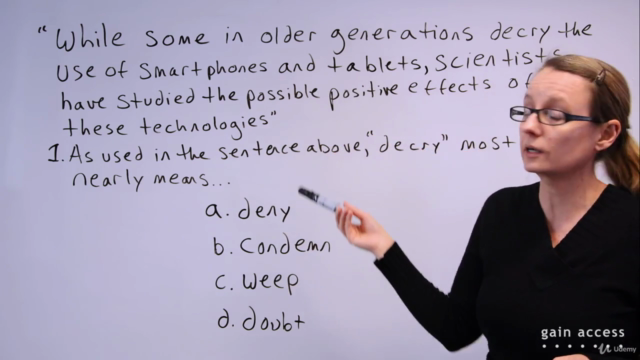 "While some in older generations decry the
use of smartphones and tablets, scientists
have studied the possible positive effects of
these technologies"
1. As used in the sentence above, "decry" most
nearly means...
a. deny
b. Condemn
c. weep
d. doubt
gain access
Udemy